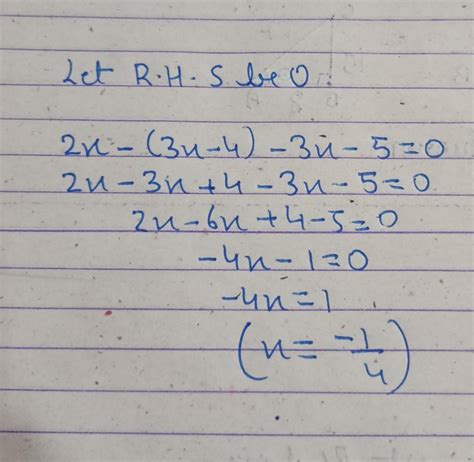 Let R.H.S be 0.
2x - (3x - 4) - 3x - 5 = 0
2x - 3x + 4 - 3x - 5 = 0
2x - 6x + 4 - 5 = 0
-4x - 1 = 0
-4x = 1
(x = -1/4)